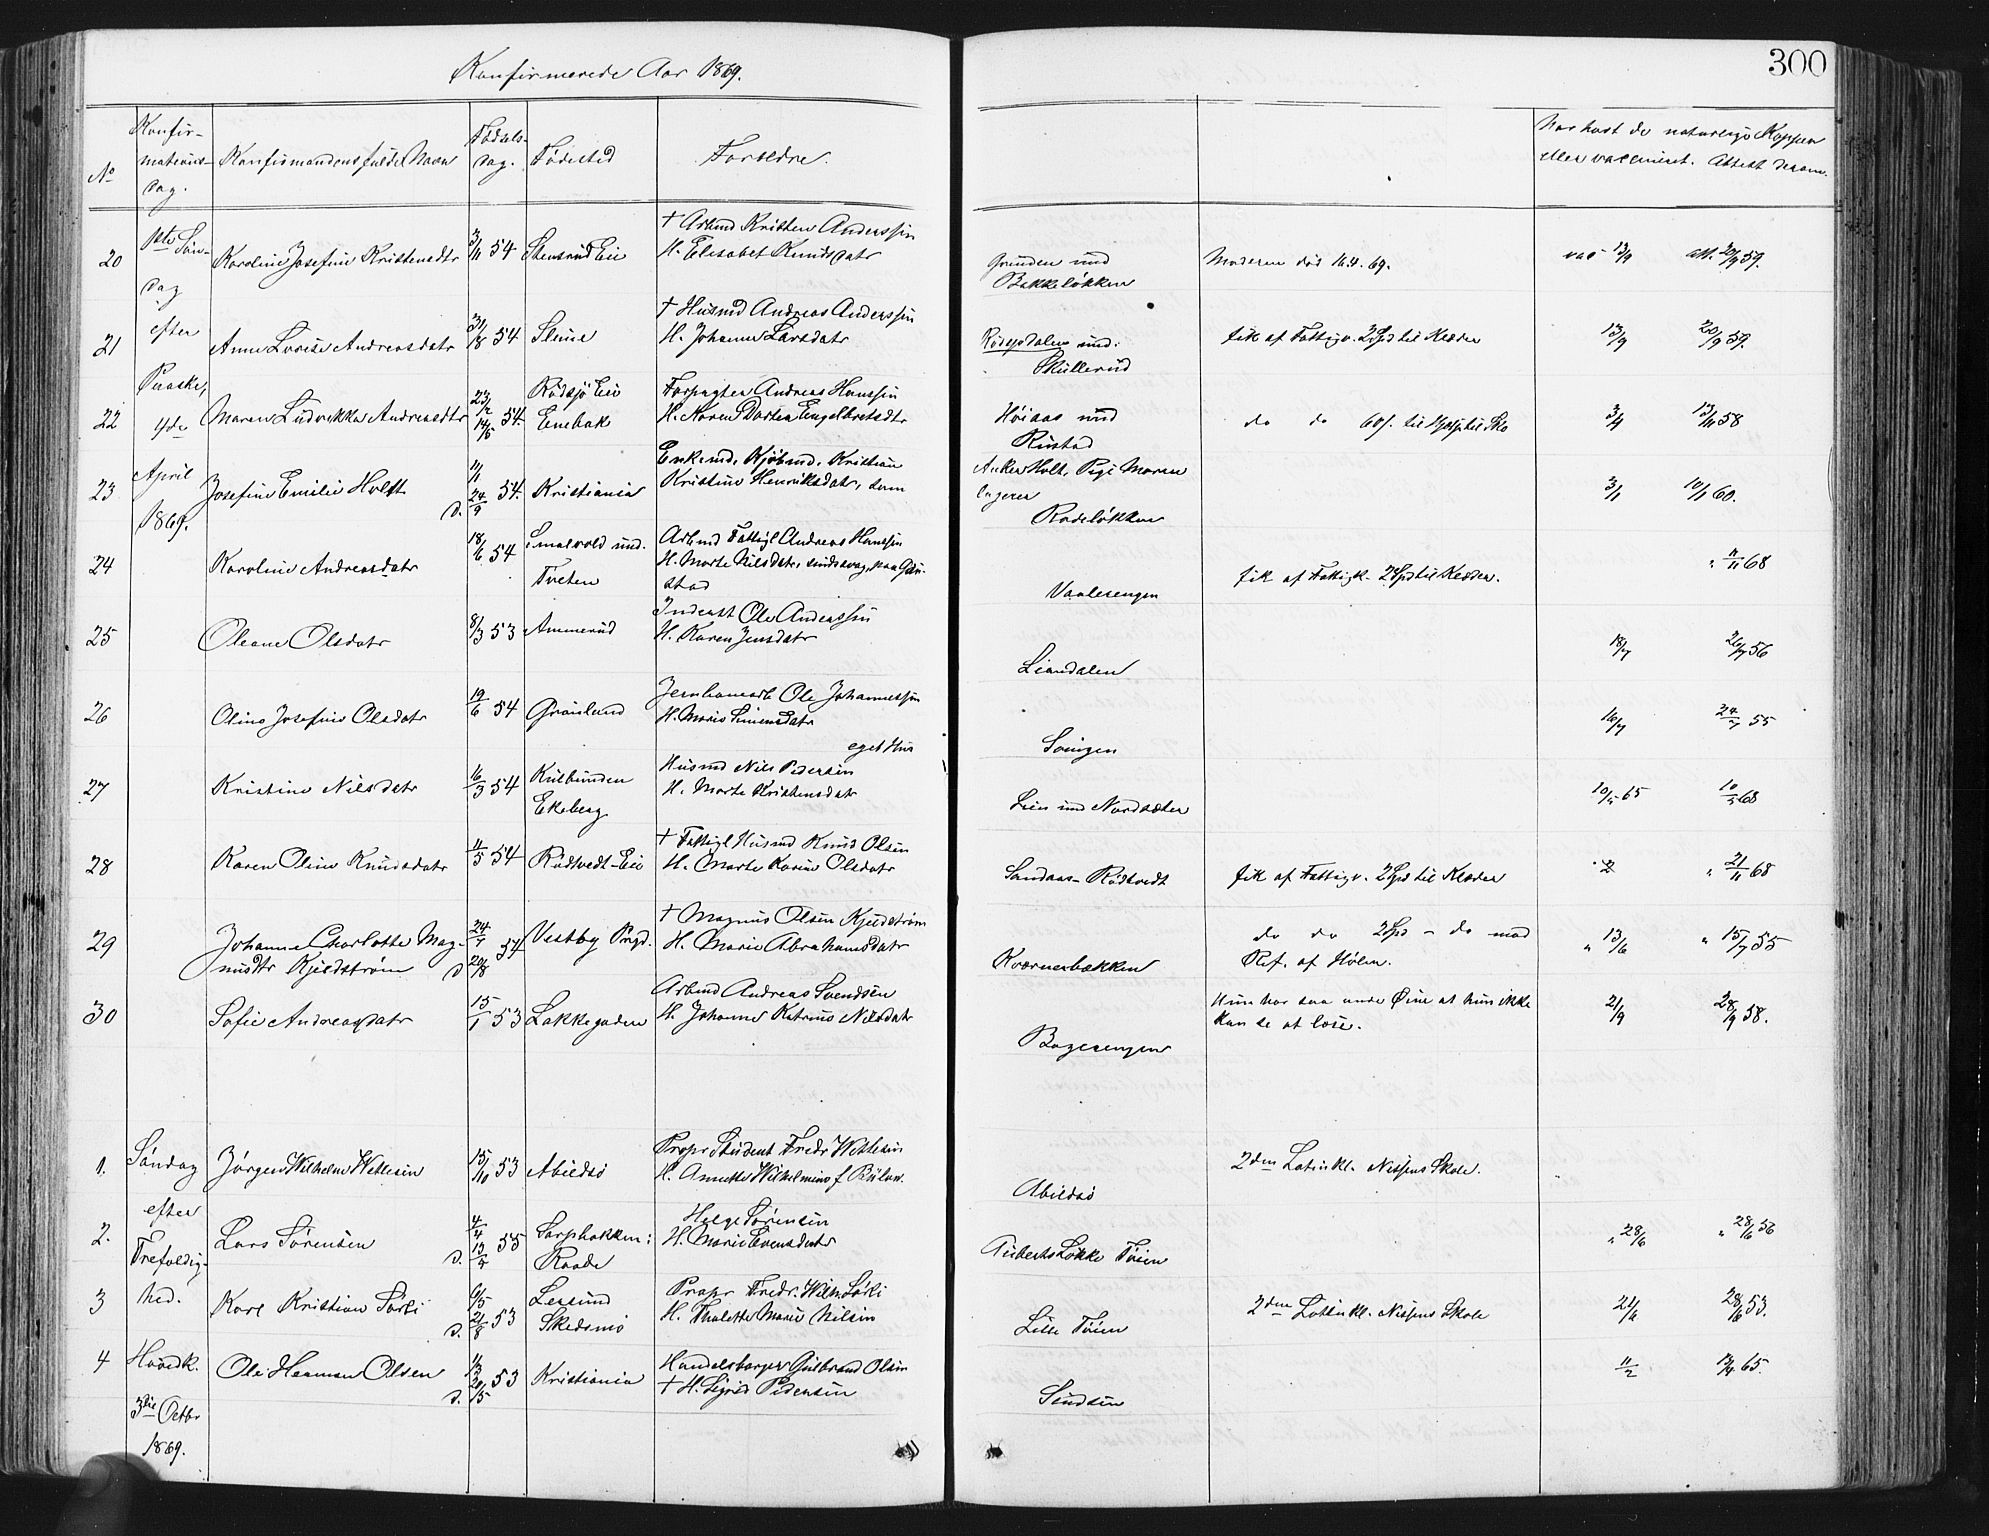 Konfirmerede Aar 1869.
300
No
Konfir-
mations-
dag.
Konfirmandens fulde Navn
Fødsels-
dag.
Fødested
Forældre.
Har havt de naturlige Kopper
eller vaccineret. Attest derom.
20
1ste Søn-
dag
efter
Paaske,
4de
April
1869.
Karoline Josefine Kristensdtr
3/11 54
Stensrud Eie
† Arbmd Kristen Anderssøn
H. Elisabet Knudsdatr
Grunden und
Bakkeløkken
Moderen død 16.4.69.
vac 13/9
att. 20/9 59.
21
Anne Lovise Andreasdatr
54
† Husmd Andreas Anderssøn
H. Johanne Larsdatr
und.
Skullerud
fik af Fattigv. 2 Spd til Klæder
13/9
20/9 59.
22
Maren Ludvikka Andreasdtr
54.
Rødsjø Eie
Enebak
Forpagter Andreas Hanssøn
H. Karen Dortea Engelbretsdtr
Høiaas und
Rustad
do do
til Sko
3/4
13/11 58
23
Josefine Emilie Holst
11/1
d. 24/9 54.
Kristiania
Kristian
Kristine Henriksdatr, som
Anker Holt, Pige Maren
lagerer
Kodeløkken
3/1
10/1 60.
24
Karoline Andreasdatr
18/6 54
Smalvold und.
Tveten
Arbmd Fattigl Andreas Hanssøn
H. Marte Nilsdatr, sindssvag, paa Gau-
stad
Vaalerengen
fik af Fattigk. 2 Spd til Klæder.
" 11/11 68
25
Oleane Olsdatr
8/3 53
Ammerud
Inderst Ole Anderssøn
H. Karen Jensdatr
Liandalen
18/7
26/7 56
26
Oline Josefine Olsdatr
19/6 54
Grønland
Jernbanearb Ole Johannessøn
H. Marie Simensdatr
eget Hus
Svingen
16/7
24/7 55
27
Kristine Nilsdatr
16/3 54
Kulbunden
Ekeberg
Husmd Nils Pedersen
H. Marte Kristensdatr
Lien und Nordsæter
10/5 65
10/5 68
28
Karen Oline Knudsdatr
11/5 54
Rødtvedt-Eie
† Fattigl Husmd Knud Olsen
H. Marte Karine Olsdatr
Sandaas-Rødtvedt
fik af Fattigv. 2 Spd til Klæder
" 21/11 68
29
Johanne Charlotte Mag-
nusdtr Kjeldstrøm
d 20/8 54
Vestby Prgd.
† Magnus Olsen Kjeldstrøm
H. Marie Abrahamsdatr
Kværnerbakken
do do 2 Spd – do mod
Ref. af Hølen.
" 13/6
" 15/7 55
30
Sofie Andreasdatr
15/1 53
Lakkegaden
Arbmd Andreas Svendsen
H. Johanne Katrine Nilsdatr
Bagerengen
Hun har saa onde Øine at hun ikke
kan se at læse.
21/9
28/9 58.
1.
Søndag
efter
Trefoldig-
hed.
Hovedk.
3die Octbr
1869.
Jørgen Wilhelm Wettesen
15/10 53
Abildsø
Propr Student Fredr Wettesen
H. Annette Wilhelmine f Bülow.
Abildsø
2den Latinkl. Nissens Skole.
2.
Lars Sørensen
4/4
d. 55
Sarpbakken i
Raade
Helge Sørensen
H. Marie Evensdatr
Auberts Løkke Tøien
" 28/6
" 28/6 56
3
Karl Kristian Sørli
6/5
d. 21/8 53
Skedsmo
Propr Fredr. Wilh Sørli
H. Thalette Marie Nilsen
Lille Tøien
2den Latinkl. Nissens Skole
21/6
28/6 53.
4
Ole Herman Olsen
11/3
d. 20/5 53
Kristiania
Handelsborger Gulbrand Olsen
† H. Sigrid Pedersen
11/2
65.